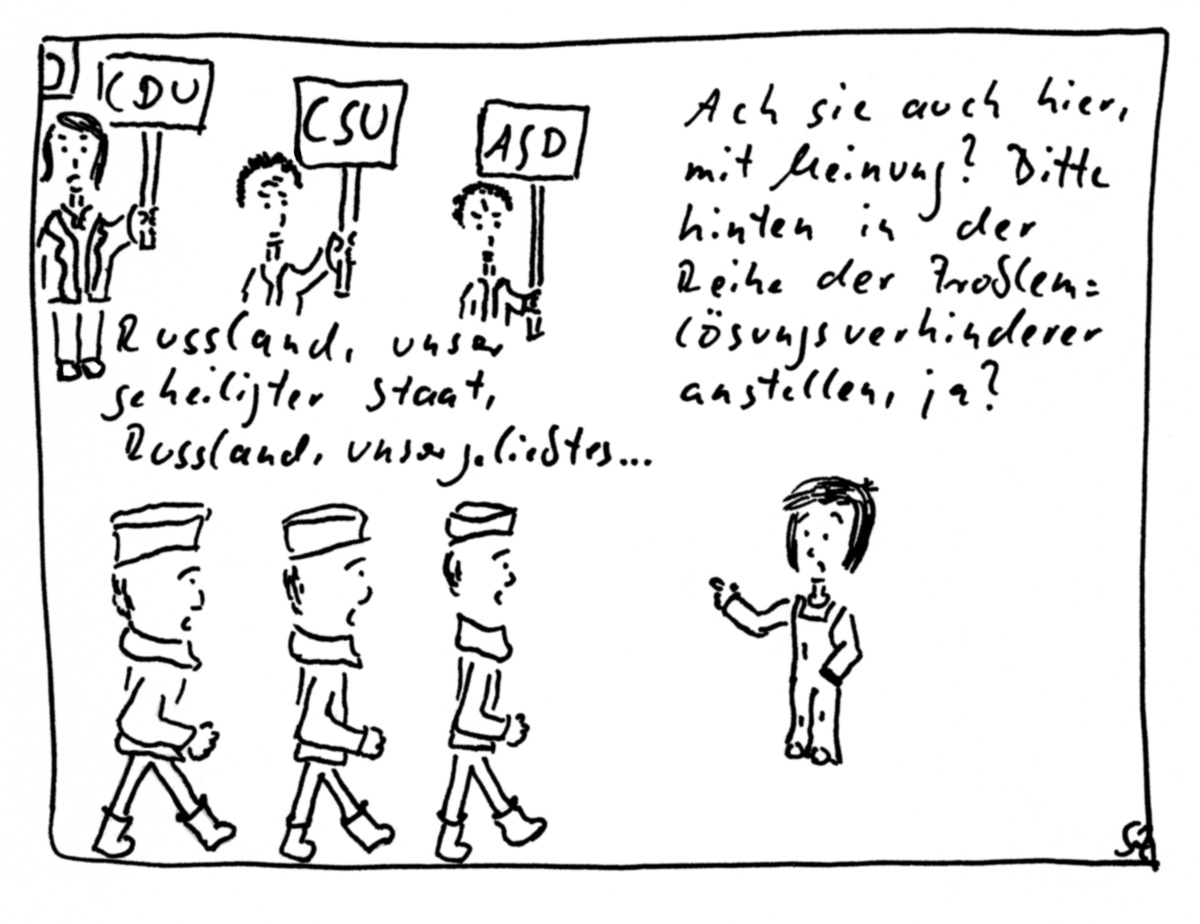 CDU
CSU
AfD
Ach sie auch hier,
mit Meinung? Bitte
hinten in der
Reihe der Problem=
lösungsverhinderer
anstellen, ja?
Russland, unser
geheiligter Staat,
Russland, unser geliebtes...